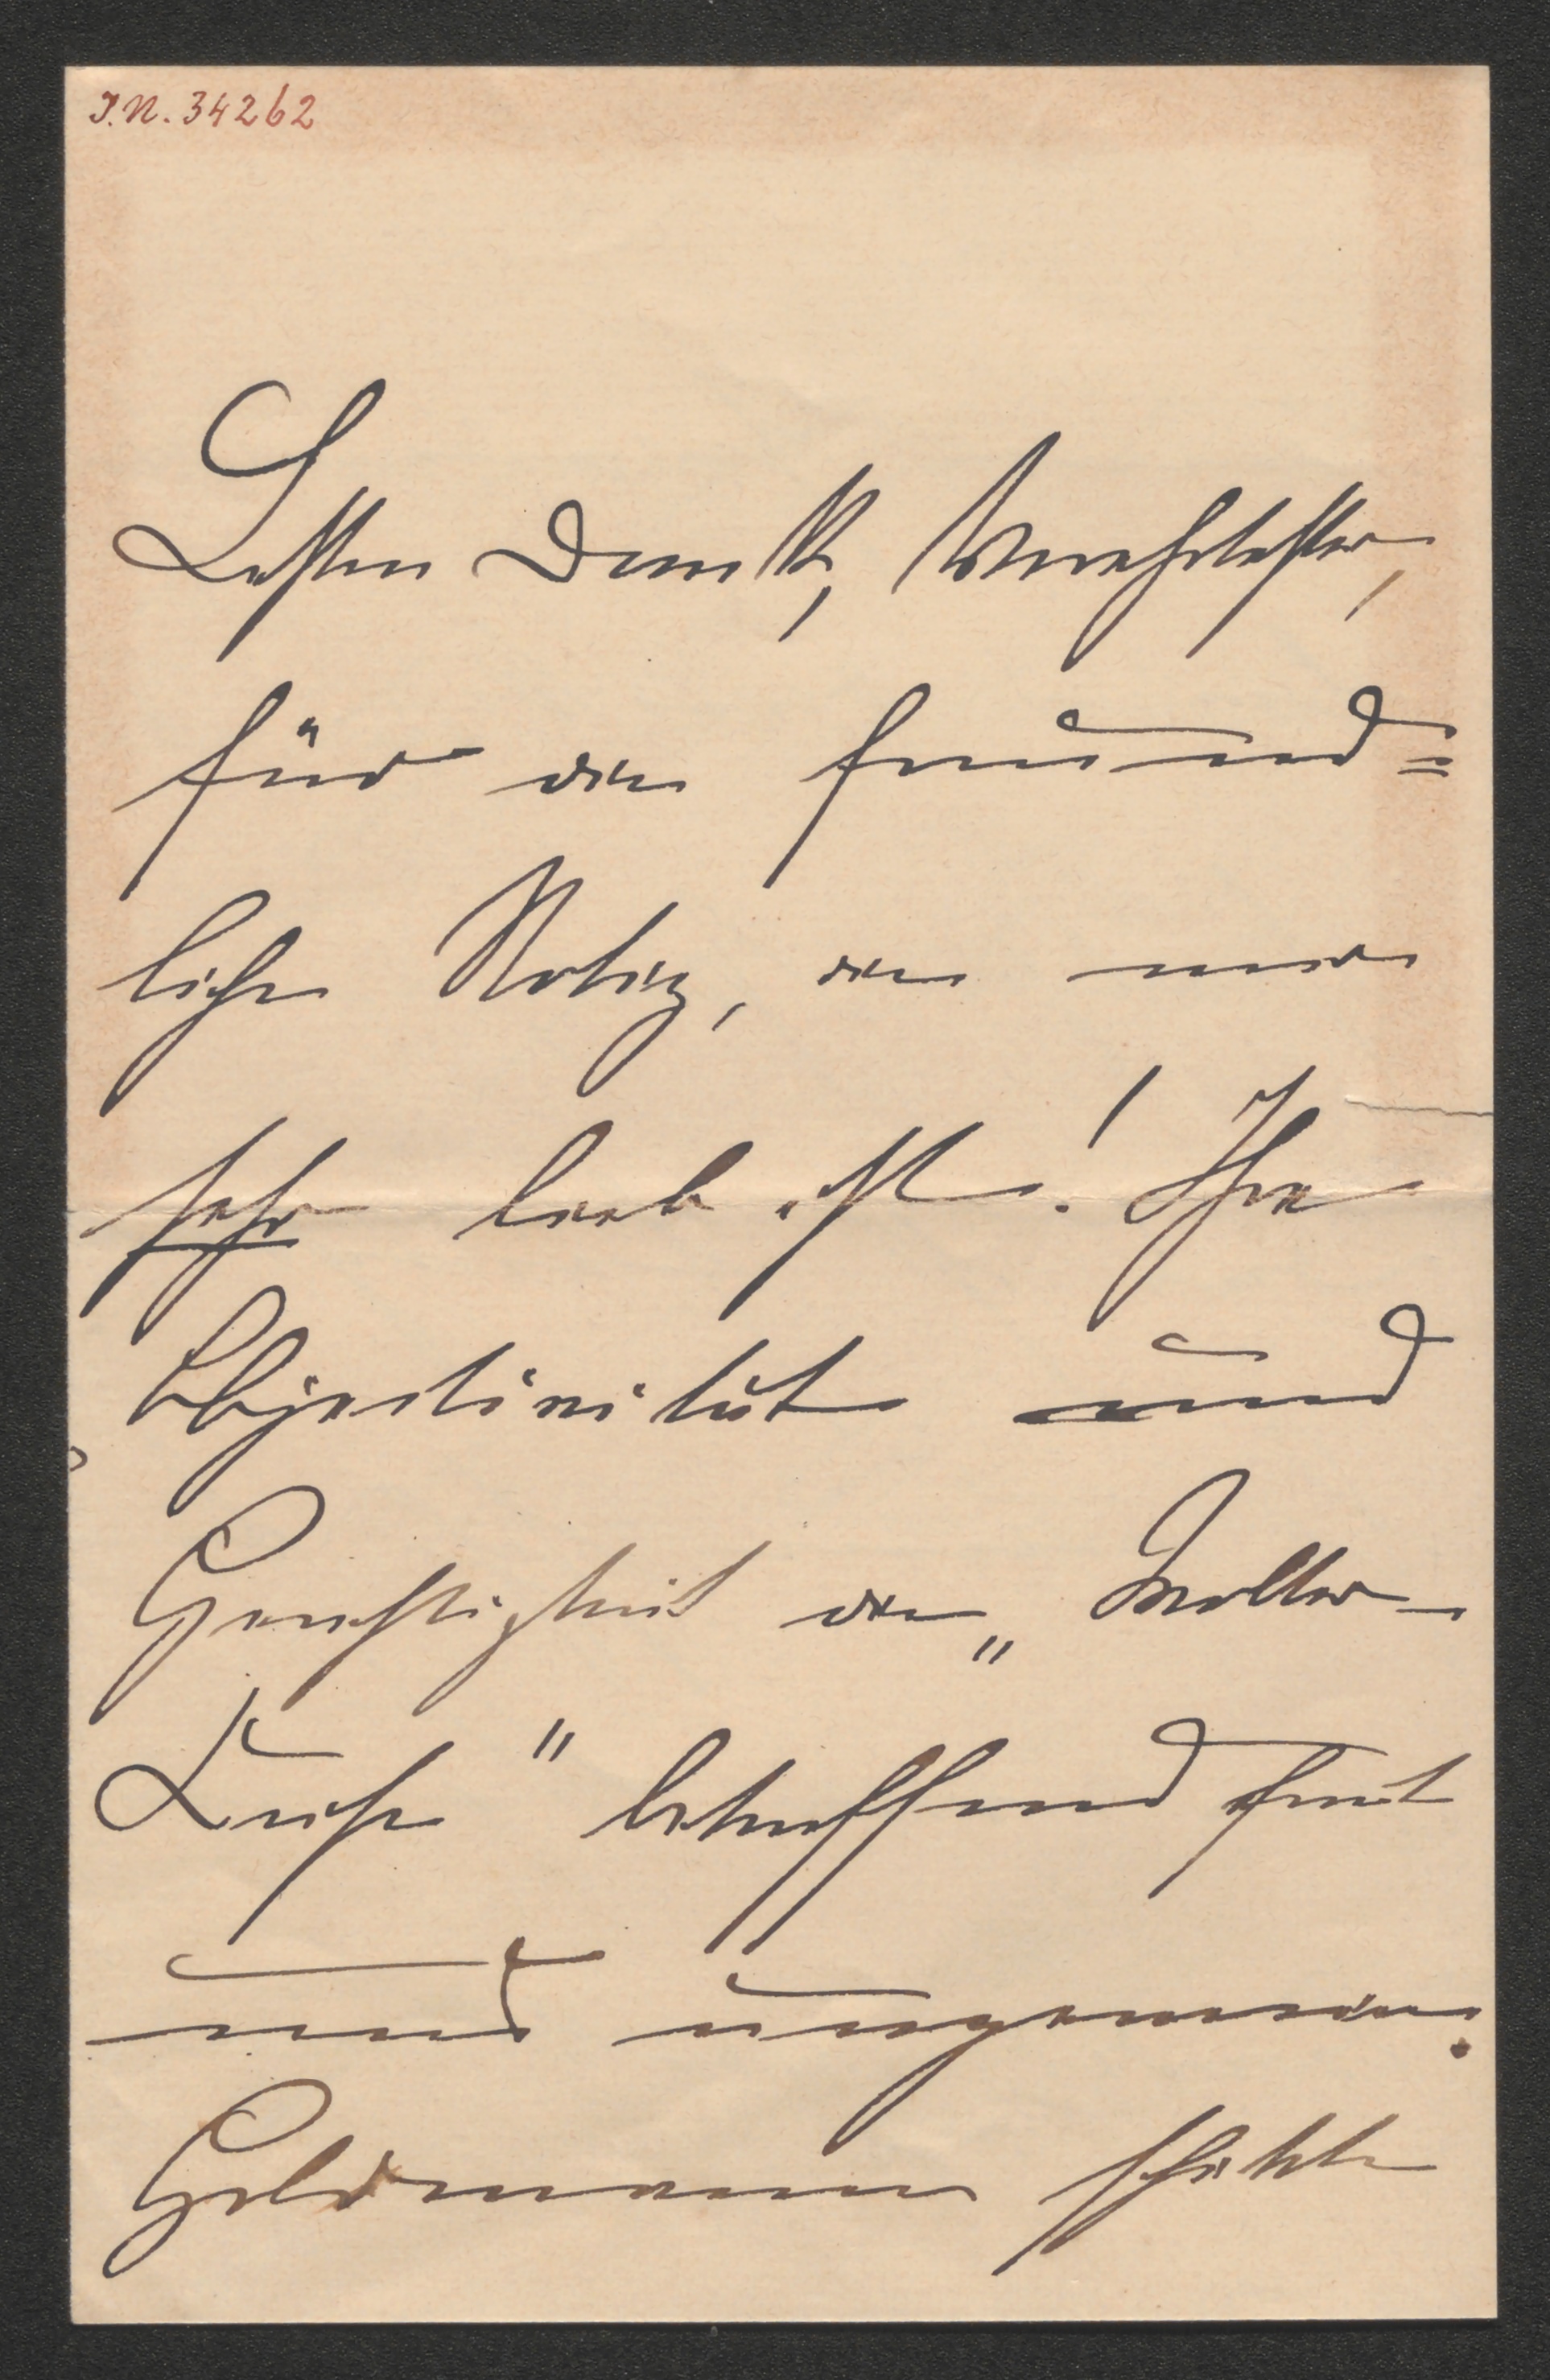 I.N. 34262
Besten Dank, Verehrtester,
für die freund=
liche Notiz, die mir
sehr lieb ist! Ihre
Objectivität und
Gerechtigkeit die „Wolter-
Kirche" betreffend freut
mich ungemein.
Goldmann schickte